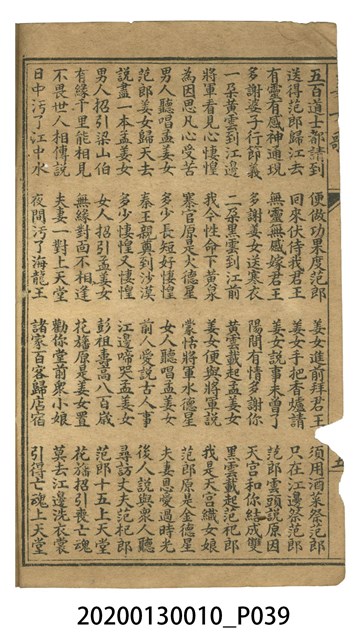 五百道士都請到　便做功果度范郎　姜女進前拜君王　須用酒菜祭范郎
送得范郎歸江去　回來伏侍我君王　姜女手把香爐請　只在江邊祭范郎
有靈有感神通現　無靈無感嫁君王　姜女說事未曾了　范郎雲頭說原因
多謝婆子行節義　多謝姜女送寒衣　陽間有情多謝你　天宮和你結成雙
一朵黃雲到江邊　二朶黑雲到江前　黃雲載起孟姜女　黑雲載起范杞郎
將軍看見心悽惶　我今性命下黃泉　姜女便與將軍說　我是天宮織女娘
為因思凡心受苦　寒官原是火德星　蒙恬將軍水德星　范郎原是金德星
男人聽唱孟姜女　多少長短好悽惶　女人聽唱孟姜女　夫妻恩愛過時光
范郎姜女歸天去　秦王親奠到沙漠　前人愛說古人事　後人說與衆人聽
說盡一本孟姜女　多少悽惶又悽惶　江邊啼哭孟姜女　尋訪丈夫范杞郎
男人招引梁山伯　女人招引孟姜女　彭祖壽高八百歲　范郎十五上天堂
有緣千里能相見　無緣對面不相逢　花旛原是姜女置　花旛招引喪亡魂
不畏世人相傳說　夫妻一對上天堂　勸你堂前衆小娘　莫去江邊洗衣裳
日中污了江中水　夜間污了海龍王　諸家百客歸店宿　引得亡魂上天堂
20200130010_P039